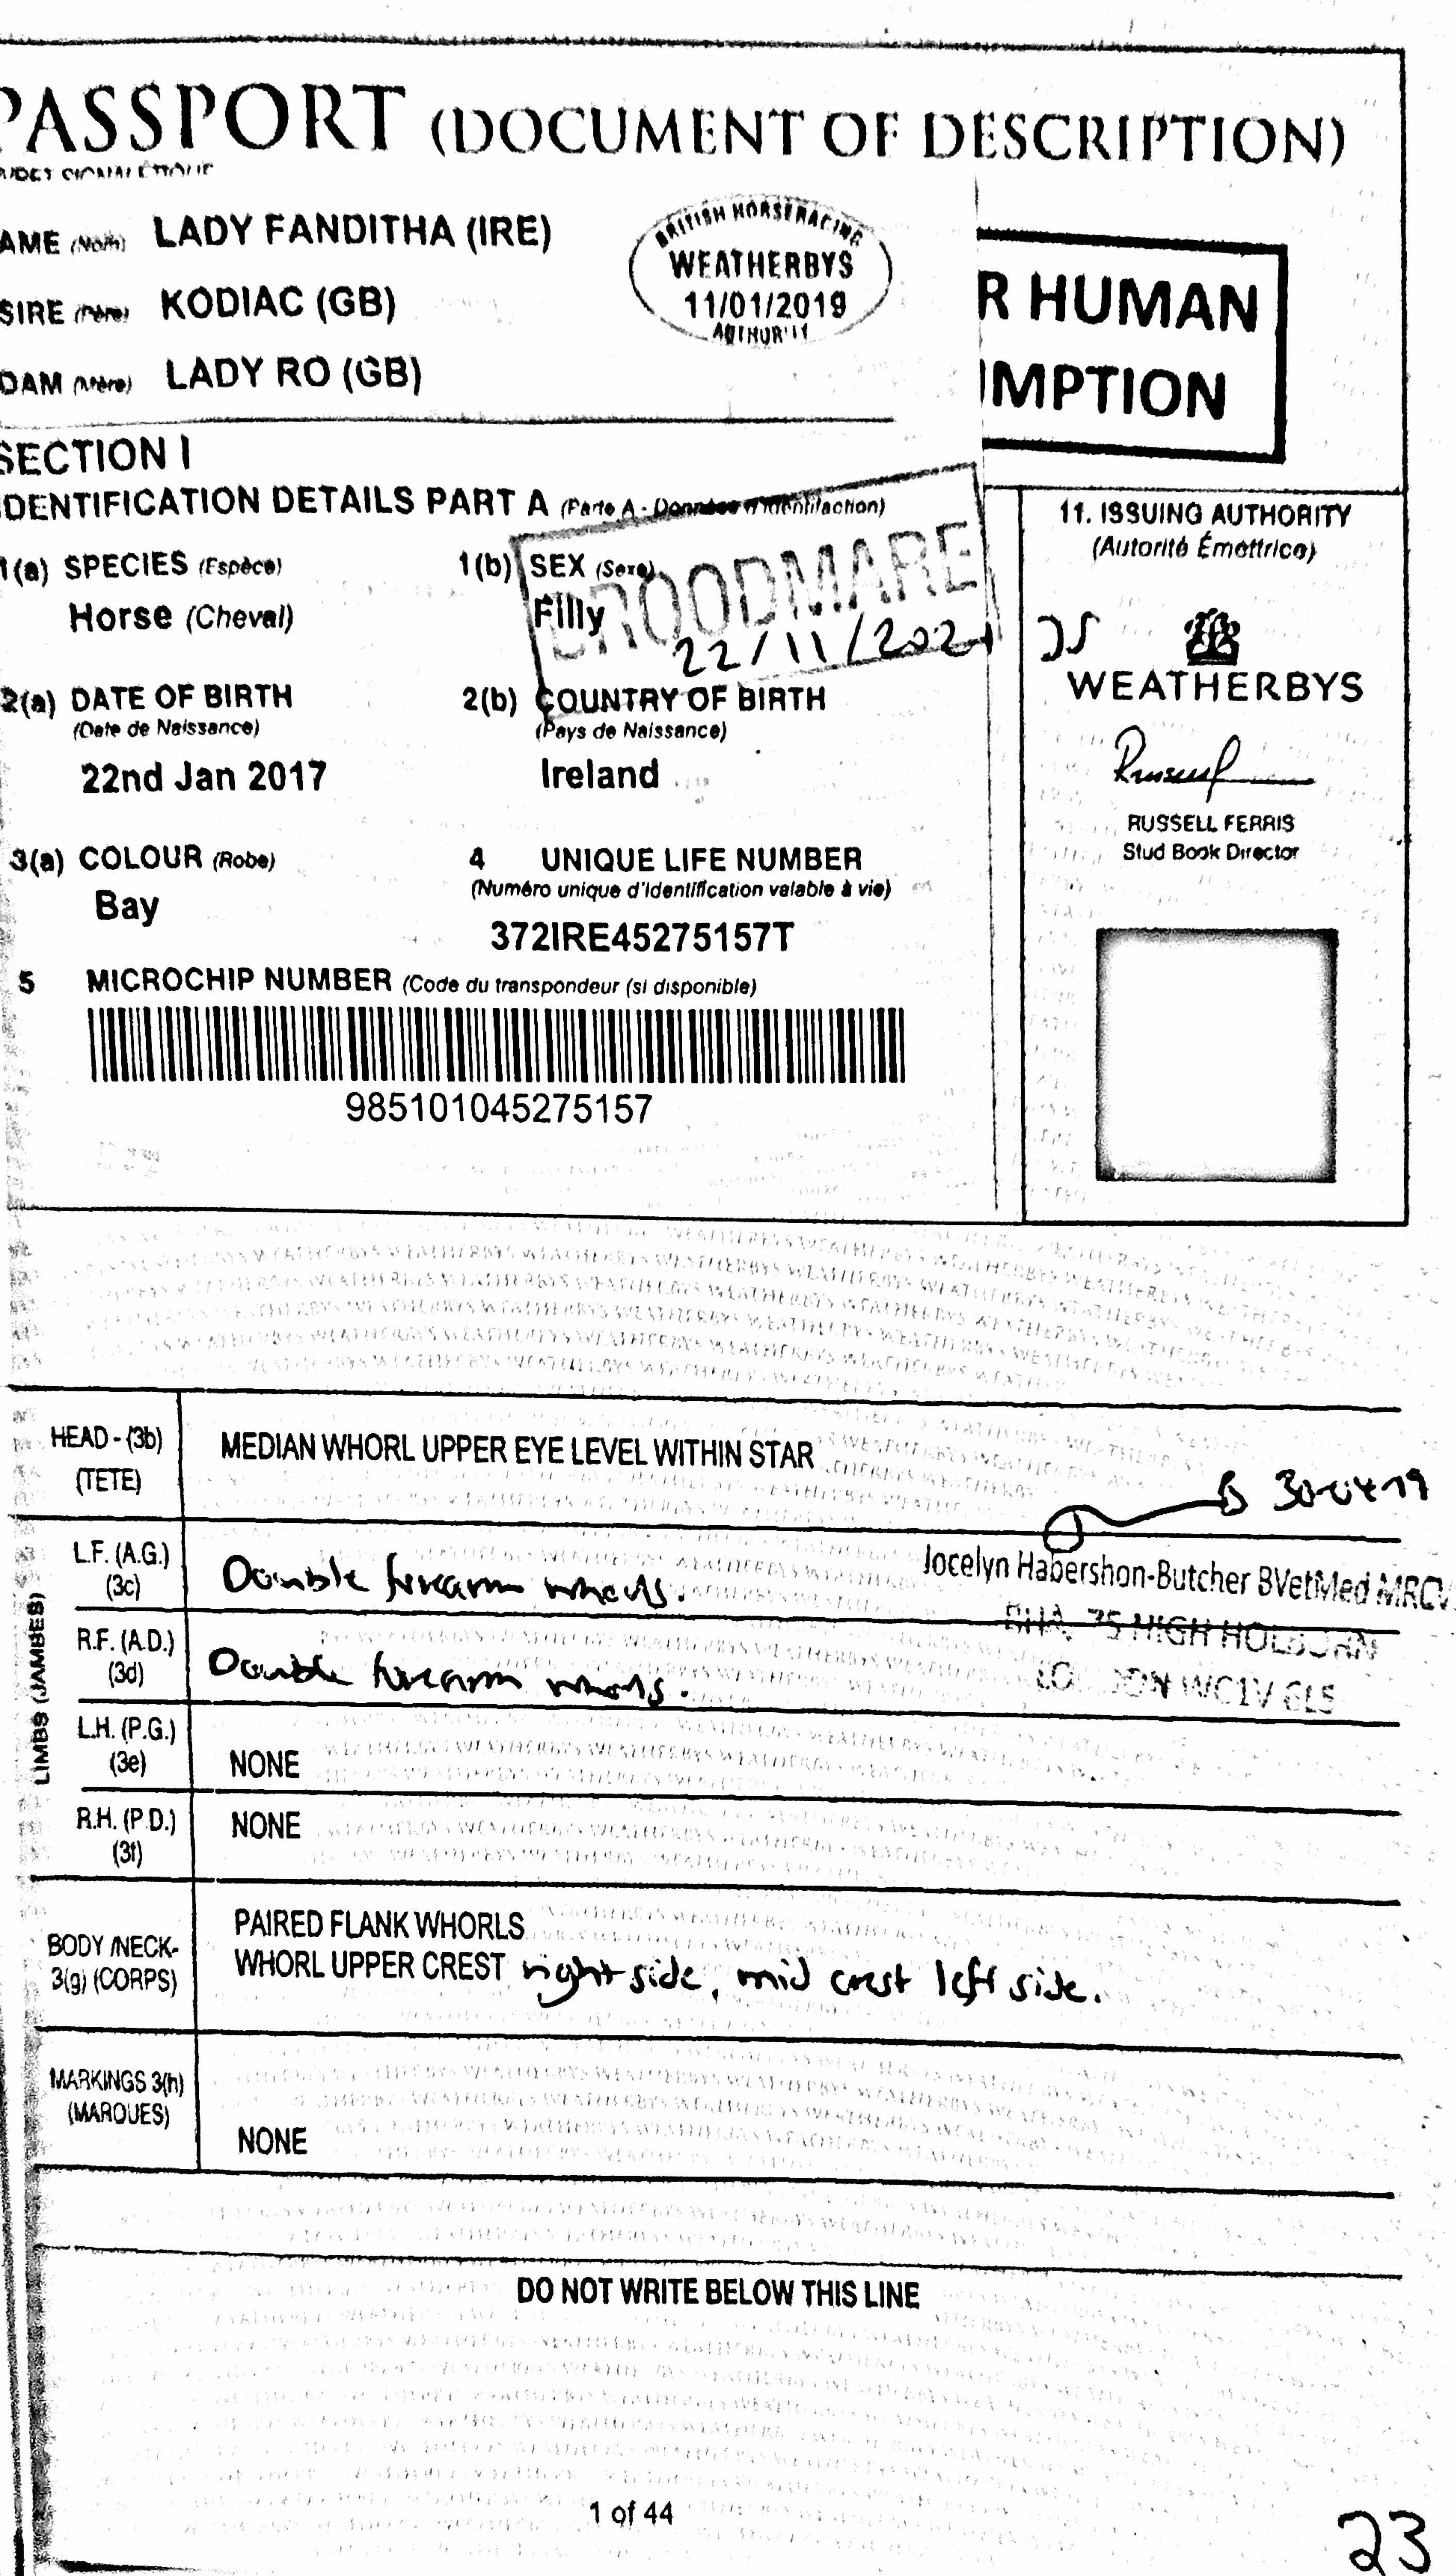 PASSPORT (DOCUMENT OF DESCRIPTION)
AME (Nom) LADY FANDITHA (IRE)
SIRE (Père) KODIAC (GB)
DAM (Mère) LADY RO (GB)
BRITISH HORSERACING
WEATHERBYS
11/01/2019
AUTHORITY
R HUMAN
MPTION
SECTION I
IDENTIFICATION DETAILS PART A (Parte A - Données d'identifaction)
1(a) SPECIES (Espèce)
Horse (Cheval)
1(b) SEX (Sexe)
Filly
BROODMARE
22/11/2021
2(a) DATE OF BIRTH
(Date de Naissance)
22nd Jan 2017
2(b) COUNTRY OF BIRTH
(Pays de Naissance)
Ireland
3(a) COLOUR (Robe)
Bay
4 UNIQUE LIFE NUMBER
(Numéro unique d'identification valable à vie)
372IRE45275157T
5 MICROCHIP NUMBER (Code du transpondeur (si disponible)
985101045275157
11. ISSUING AUTHORITY
(Autorité Émettrice)
WEATHERBYS
RUSSELL FERRIS
Stud Book Director
HEAD - (3b)
(TETE)
MEDIAN WHORL UPPER EYE LEVEL WITHIN STAR
30-04-19
Jocelyn Habershon-Butcher BVetMed MRCV
BHA, 75 HIGH HOLBORN
LONDON WC1V 6LS
LIMBS (JAMBES)
L.F. (A.G.)
(3c)
Double forearm whorls.
R.F. (A.D.)
(3d)
Double forearm whorls.
L.H. (P.G.)
(3e)
NONE
R.H. (P.D.)
(3f)
NONE
BODY /NECK-
3(g) (CORPS)
PAIRED FLANK WHORLS
WHORL UPPER CREST right side, mid crest left side.
MARKINGS 3(h)
(MARQUES)
NONE
DO NOT WRITE BELOW THIS LINE
1 of 44
23